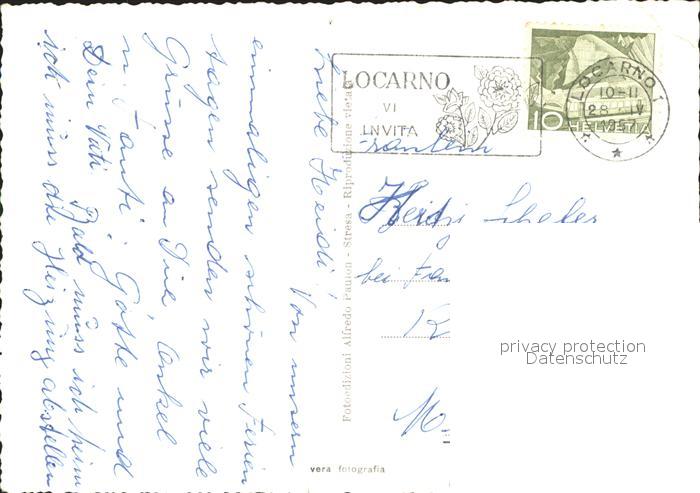 Liebe Heidi!
Von unsern
einmaligen schönen Ferien
tagen senden wir viele
Grüsse an Die, Onkel
u. Tanti! Götte und
Dein Vati Bald muss ich heim
ich muss die Heizung abstellen
LOCARNO
VI
INVITA
LOCARNO 1
10-11
28. IV
1957
10 HELVETIA
Fotoedizioni Alfredo Paulon - Stresa - Riproduzione vietata
vera fotografia
Fräulein
Heidi
bei Fam
K
M.
privacy protection
Datenschutz